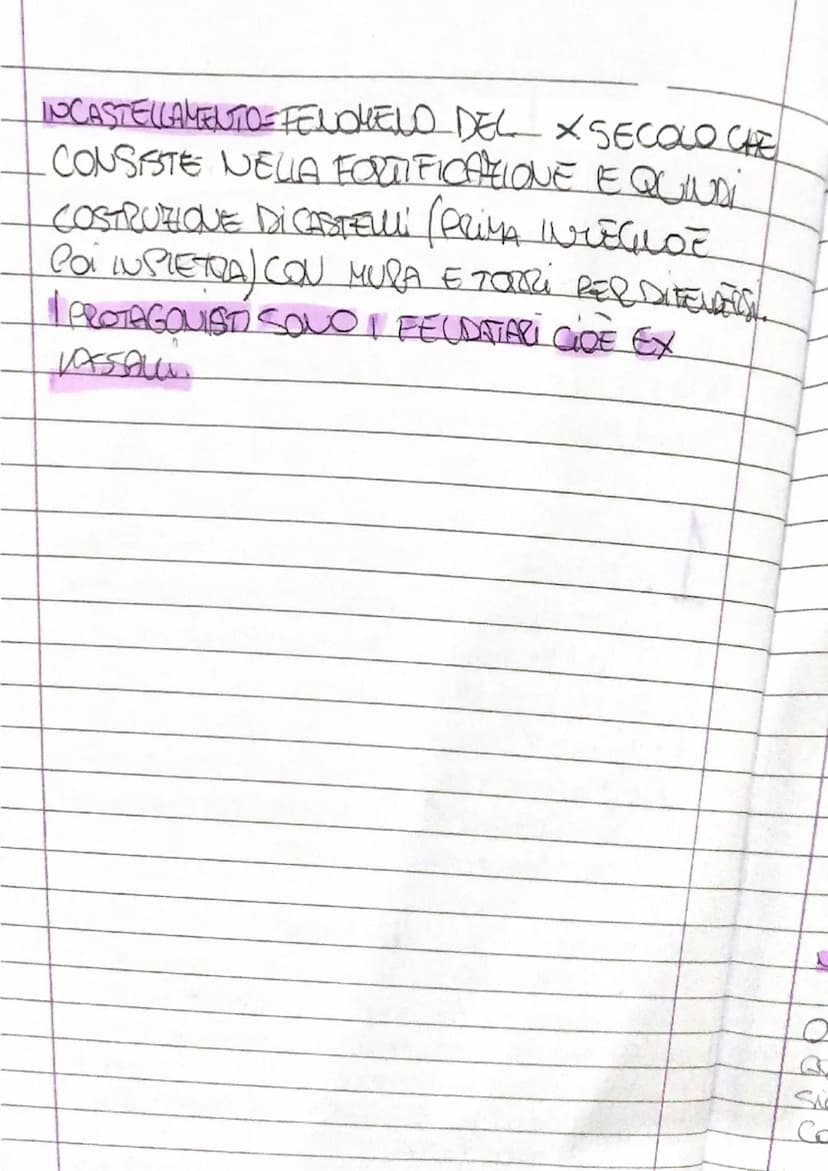 INCASTELLAMENTO=FENOMENO DEL X SECOLO CHE
CONSISTE NELLA FORTIFICAZIONE E QUINDI
COSTRUZIONE DI CASTELLI (PRIMA IN LEGNO E
POI IN PIETRA) CON MURA E TORRI PER DIFENDERSI.
I PROTAGONISTI SONO I FEUDATARI CIOÈ EX
VASSALLI.